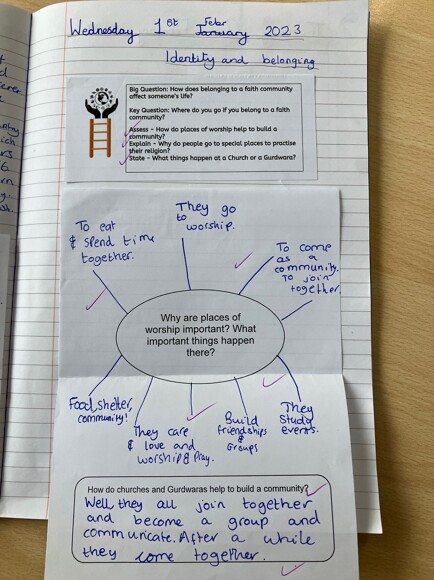 Wednesday 1st Febar January 2023
Identity and belonging
Big Question: How does belonging to a faith community
affect someone's life?
Key Question: Where do you go if you belong to a faith
community?
Assess - How do places of worship help to build a
community?
Explain - Why do people go to special places to practise
their religion?
State - What things happen at a Church or a Gurdwara?
To eat
& spend time
together.
They go
to
worship.
To come
as a
community.
To join
together.
Why are places of
worship important? What
important things happen
there?
Food, shelter,
community!
They care
& love and
worship & Pray.
Build
friendships
&
Groups
They
Study
events.
How do churches and Gurdwaras help to build a community?
Well they all join together
and become a group and
communicate. After a while
they come together.